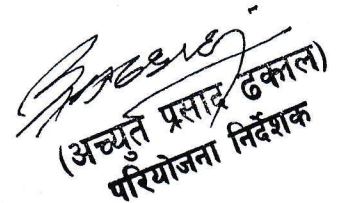 (अच्युत प्रसाद ढकाल)
परियोजना निर्देशक